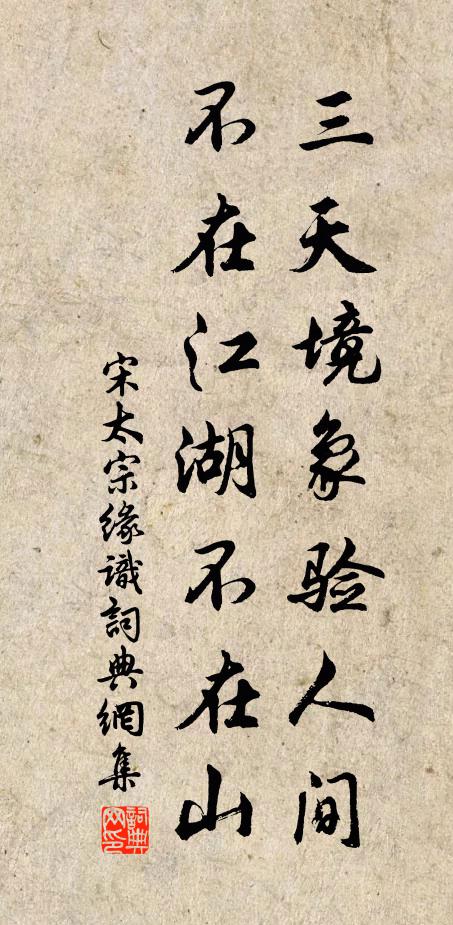 三天境象验人间
不在江湖不在山
宋太宗缘識詞典網集
詞典网印